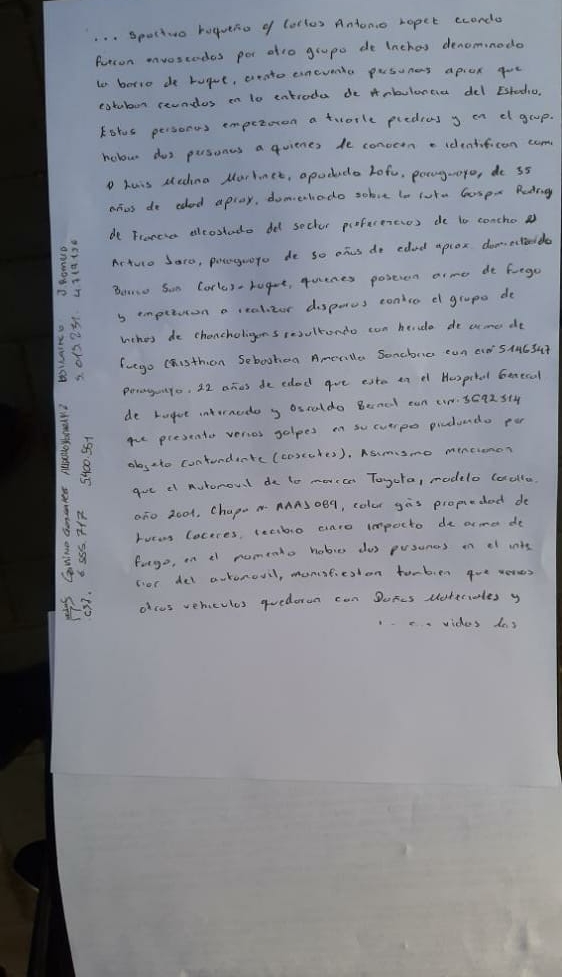 ... Sportivo Luqueño c/ Carlos Antonio Lopez cuando
fueron envoscados por otro grupo de Inchas denominado
la barra de Luque, ciento cincuenta personas aprox que
estaban reunidos en la entrada de Ambulancia del Estadio.
Estas personas empezaron a tirarle piedras y en el grup.
habia dos personas a quienes le conocen e identifican com
Luis Medina Martinez, apodado Lofu, paraguayo, de 35
años de edad aprox, domiciliado sobre la ruta Gaspar Rodrig
de Francia alcostado del sector preferencias de la cancha
Arturo Jara, paraguayo de 30 años de edad aprox. domiciliado
Barrio San Carlos-Luque, quienes poseian arma de fuego
y empezaron a realizar disparos contra el grupo de
inchas de chancholigans resultando con herida de arma de
fuego Cristhian Sebastian Amarilla Sanabria con 5146347
Paraguayo, 22 años de edad que esta en el Hospital General
de Luque internado y Osvaldo Bernal con 3692514
que presenta varios golpes en su cuerpo producido por
objeto contundente (cascotes). Asimismo mencionan
que el Automovil de la marca Toyota, modelo Corolla.
año 2001, Chapa n AAAJ089, color gris propiedad de
Lucas Caceres, recibio cinco impacto de arma de
fuego, en el momento habia dos personas en el inte
rior del automovil, manifiestan tambien que varios
otros vehiculos quedaron con Daños Materiales y
vidas las
6 555 717 5400 561